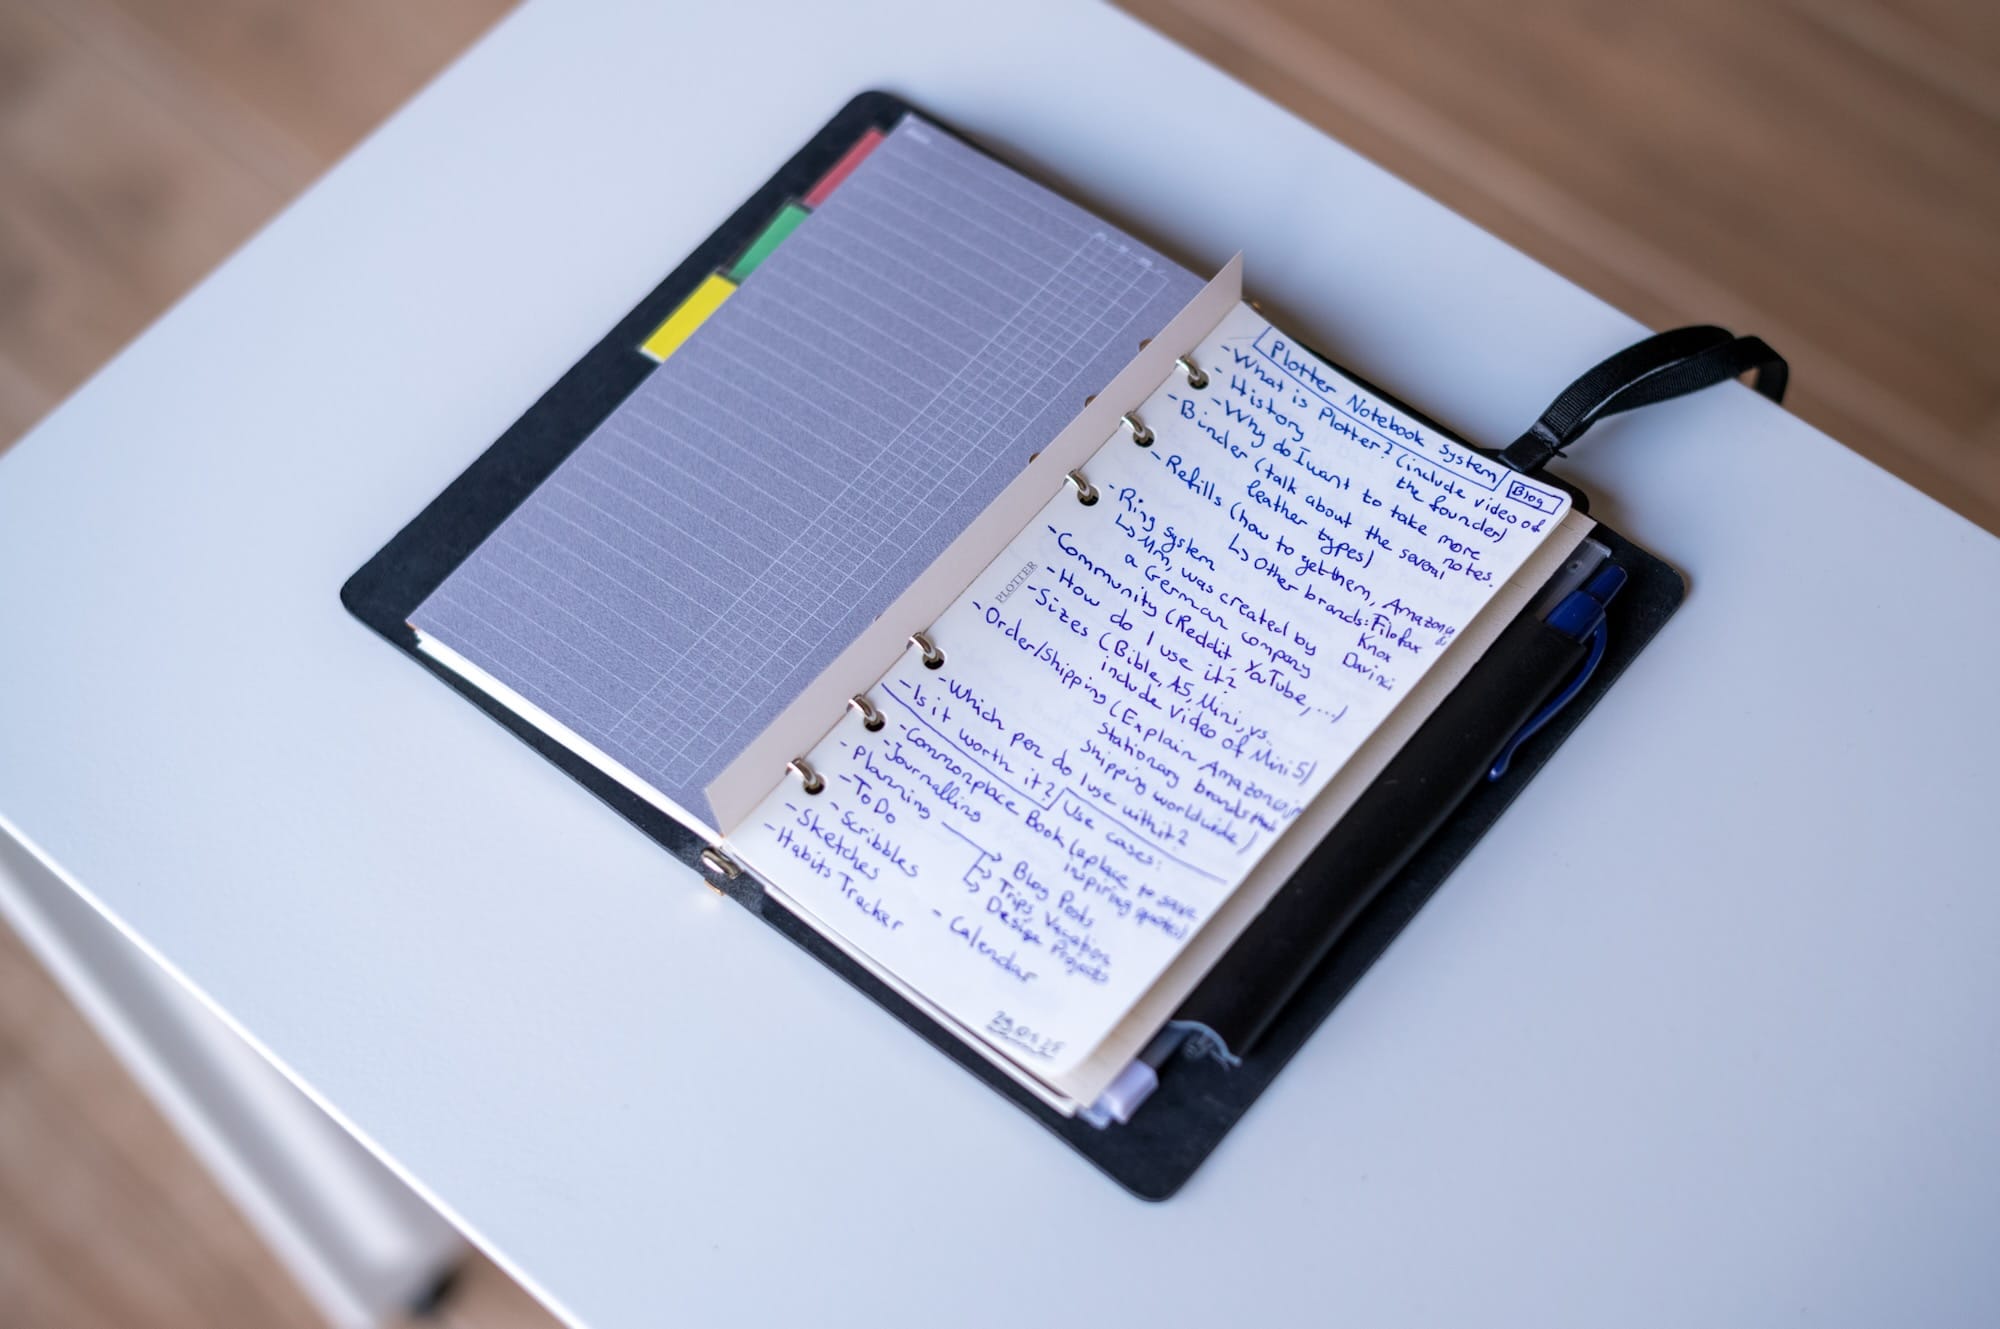 Plotter Notebook System
Blog
- What is Plotter? (include video of
the founder)
- History
- Why do I want to take more
notes.
- Binder (talk about the several
leather types)
- Refills (how to get them, Amazon,
↳ Other brands: Filofax
Knox
Davinci
- Ring system
↳ Mm, was created by
a German company
- Community (Reddit, YouTube, ...)
- How do I use it?
- Sizes (Bible, A5, Mini, vs.
include video of Mini 5)
- Order/Shipping (Explain Amazon
Stationary brands that
shipping worldwide)
- Which pen do I use with it?
- Is it worth it?
Use cases:
- Commonplace Book (a place to save
inspiring quotes)
- Journalling
- Planning
Blog Posts
Trips, Vacation
Design Projects
- To Do
- Scribbles
- Sketches
- Habits Tracker
- Calendar
PLOTTER